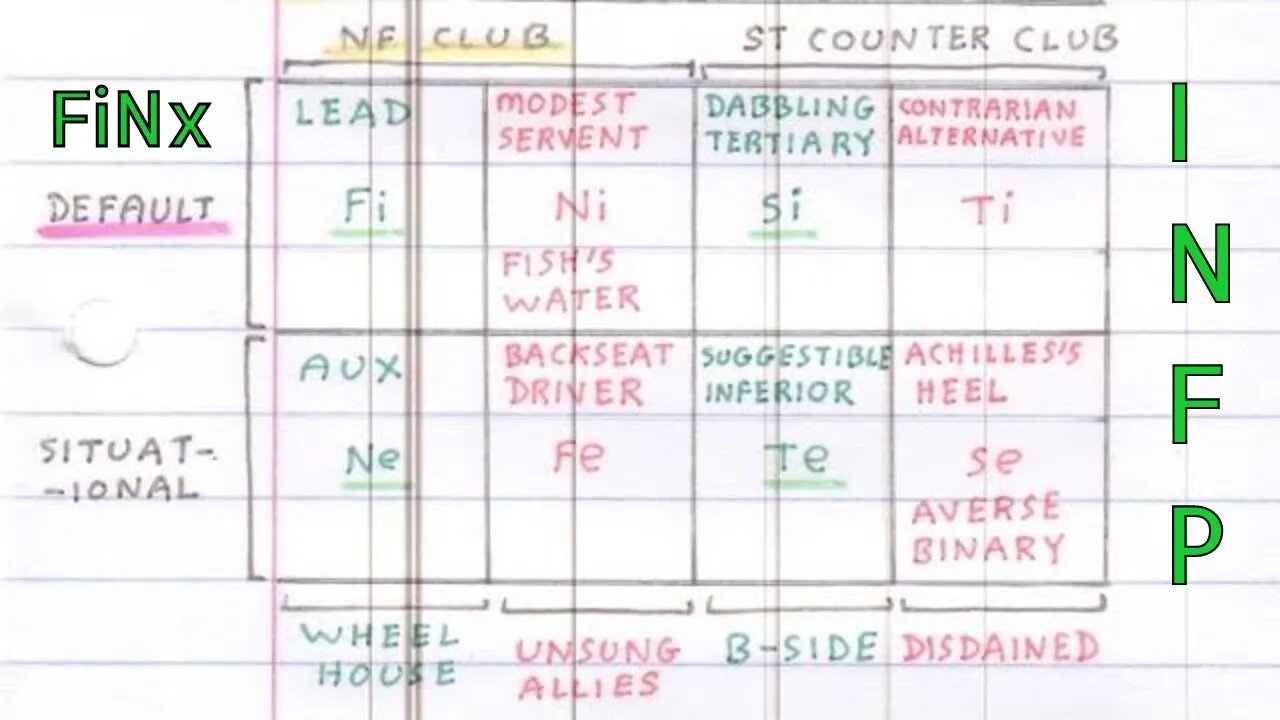 NF CLUB
ST COUNTER CLUB
FiNx
DEFAULT
LEAD
Fi
MODEST
SERVENT
Ni
FISH'S
WATER
DABBLING
TERTIARY
Si
CONTRARIAN
ALTERNATIVE
Ti
SITUAT-
-IONAL
AUX
Ne
BACKSEAT
DRIVER
Fe
SUGGESTIBLE
INFERIOR
Te
ACHILLES'S
HEEL
Se
AVERSE
BINARY
WHEEL
HOUSE
UNSUNG
ALLIES
B-SIDE
DISDAINED
I
N
F
P